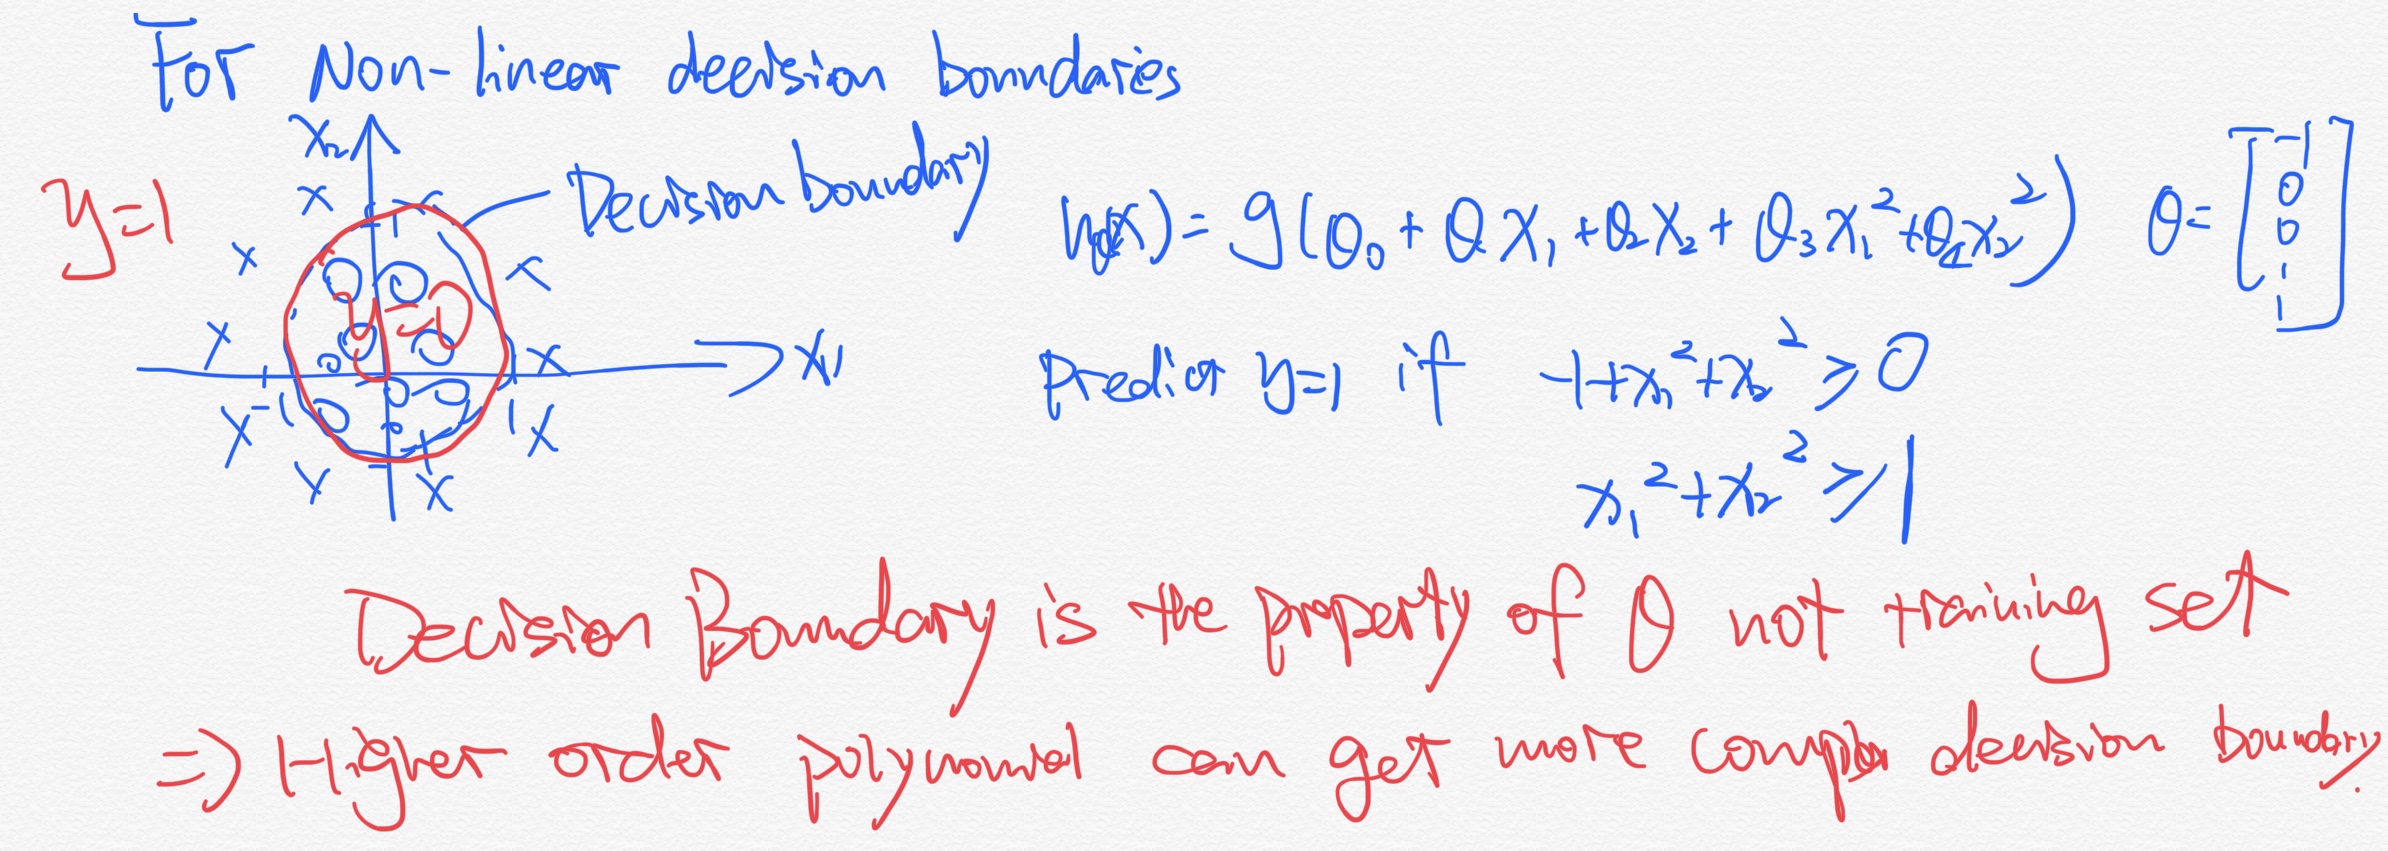 For Non-linear decision boundaries
x₂
y=1
Decision boundary
hθ(x) = g(θ₀ + θ₁x₁ + θ₂x₂ + θ₃x₁² + θ₄x₂²)
θ = [-1 0 0 1 1]
1
y=0
x₁
-1
1
-1
Predict y=1 if -1+x₁²+x₂² ≥ 0
x₁²+x₂² ≥ 1
Decision Boundary is the property of θ not training set
=> Higher order polynomial can get more complex decision boundary.